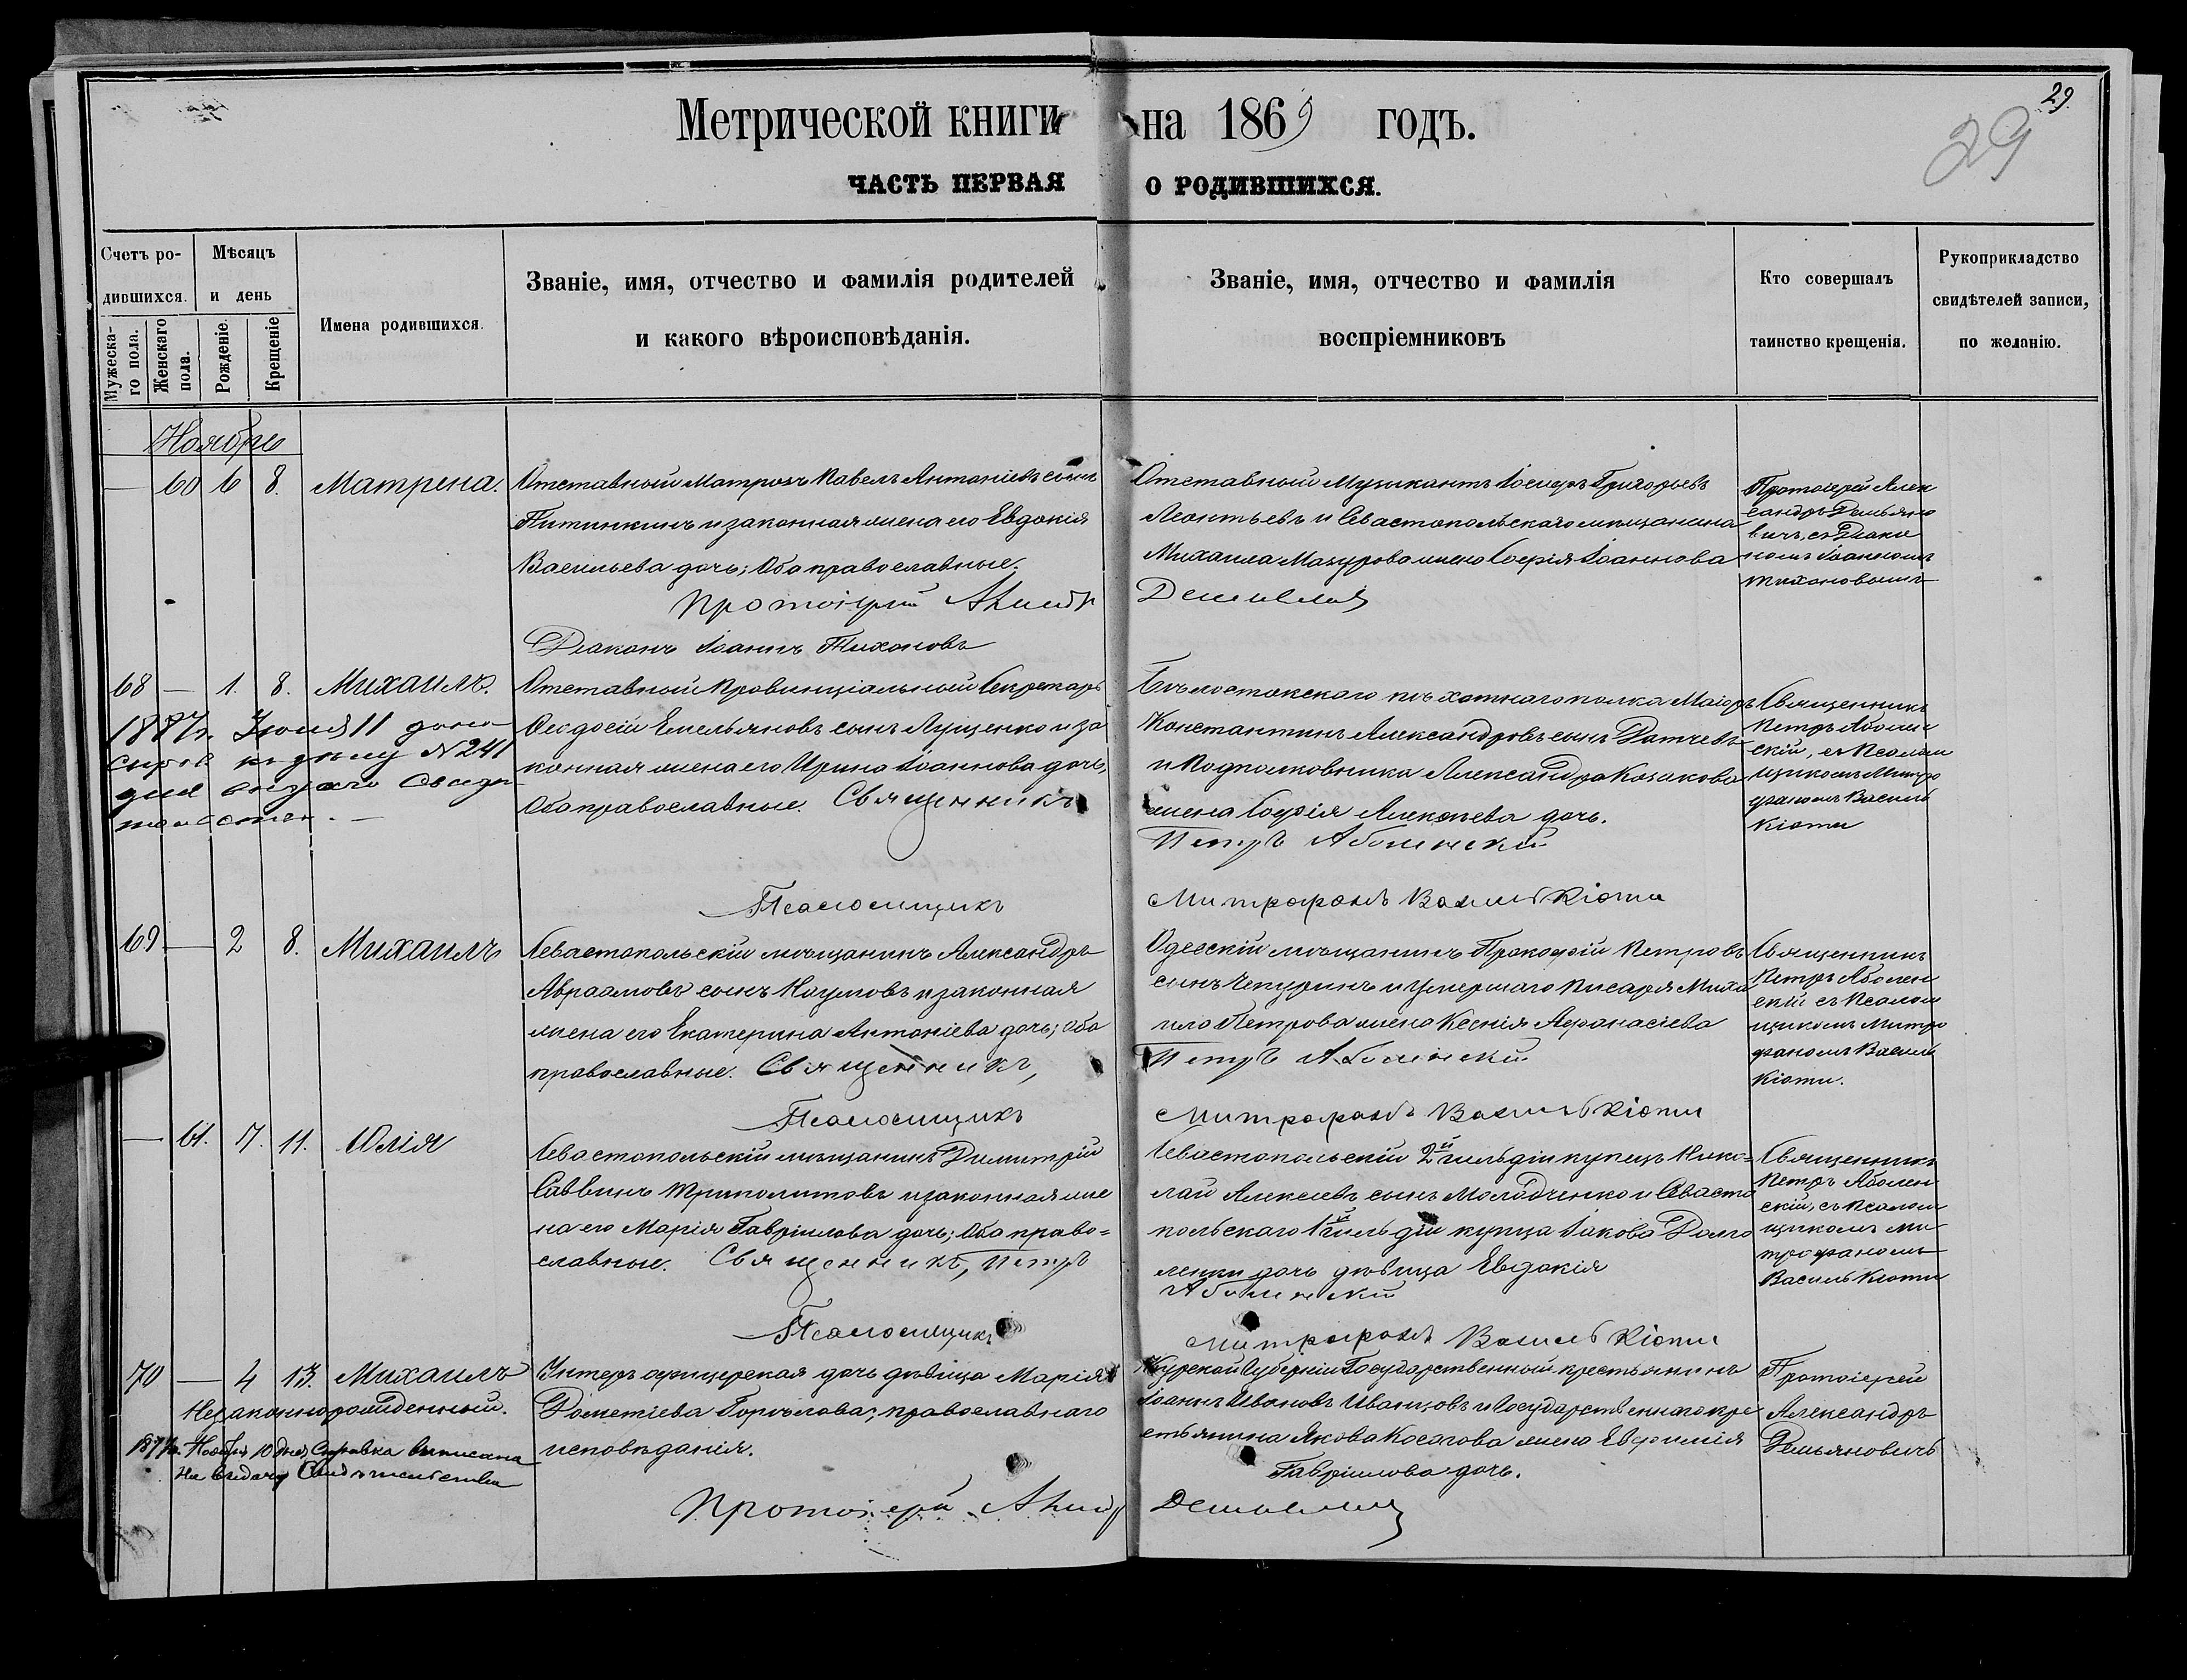 29.
29
Метрической книги на 1869 годъ.
ЧАСТЬ ПЕРВАЯ О РОДИВШИХСЯ.
Счетъ ро-
дившихся.
Мужеска-
го пола.
Женскаго
пола.
Мѣсяцъ
и день
Рожденіе.
Крещеніе
Имена родившихся.
Званіе, имя, отчество и фамилія родителей
и какого вѣроисповѣданія.
Званіе, имя, отчество и фамилія
воспріемниковъ
Кто совершалъ
таинство крещенія.
Рукоприкладство
свидѣтелей записи,
по желанію.
Ноябрь
— 60 6 8. Матрена.
Отставной Матрозъ Павелъ Антоніевъ сынъ
Питинкинъ и законная жена его Евдокія
Васильева дочь; Оба православные.
Отставной Музыкантъ Іосифъ Григорьевъ
Леонтьевъ и Севастопольскаго мѣщанина
Михаила Мазурова жена Софія Іоаннова
Протоіерей Алек
сандръ Демьяно
вичъ, съ Діако
номъ Іоанномъ
Тихоновымъ
Протоіерей
Діаконъ Іоаннъ Тихоновъ
68 — 1. 8. Михаилъ.
1887г. Іюня 11 дня
къ дѣлу № 241
Отставной Провинціальный Секретарь
Ѳеодосій Емельяновъ сынъ Луценко и за
конная жена его Ирина Іоаннова дочь,
Оба православные. Священникъ
Бѣлостокскаго пѣхотнаго полка Маіоръ
Константинъ Александровъ сынъ Датчевъ
и Подполковника Александра Козакова
жена Софія Алексѣева дочь.
Петръ Аболенскій
Священникъ
Петръ Аболен
скій, съ Псалом
щикомъ Митро
фаномъ Василь
Кіоти
Псаломщикъ Митрофанъ Василькіоти
69 — 2 8. Михаилъ
Севастопольскій мѣщанинъ Александръ
Авраамовъ сынъ Наумовъ и законная
жена его Екатерина Антоніева дочь; Оба
православные. Священникъ,
Одесскій мѣщанинъ Прокофій Петровъ
сынъ Чепуринъ и умершаго Писаря Миха
ила Петрова жена Ксенія Афанасіева
Петръ Аболенскій
Священникъ
Петръ Аболен
скій съ Псалом
щикомъ Митро
фаномъ Василь
Кіоти.
Псаломщикъ Митрофанъ Василькіоти
— 61. 7. 11. Юлія
Севастопольскій мѣщанинъ Димитрій
Саввинъ Триполитовъ и законная же
на его Марія Гавріилова дочь; Оба право=
славные. Священникъ, Петръ
Севастопольскій 2й гильдіи купецъ Нико=
лай Алексіевъ сынъ Молодченко и Севасто
польскаго 1й гильдіи купца Іакова Долго
ленки дочь дѣвица Евдокія
Аболенскій
Священникъ
Петръ Аболен
скій, съ Псалом
щикомъ Ми
трофаномъ
Василь Кіоти
Псаломщикъ Митрофанъ Василькіоти
70 — 4 13. Михаилъ
Незаконнорожденный.
Ноября 10 дня, Справка выписана
На выдачу Свидѣтельства
Унтеръ офицерская дочь дѣвица Марія
Дометіева Горохова; православнаго
исповѣданія.
Курской Губерніи Государственный крестьянинъ
Іоаннъ Ивановъ Иванцовъ и Государственнаго кре
стьянина Якова Косягова жена Евфимія
Гавріилова дочь.
Протоіерей
Александръ
Демьяновичъ
Протоіерей